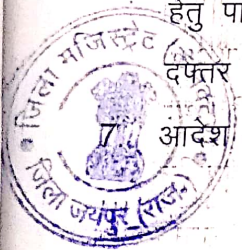 हेतु पा
दफ्तर
7 आदेश
जिला मजिस्ट्रेट
जिला जयपुर (राज.)